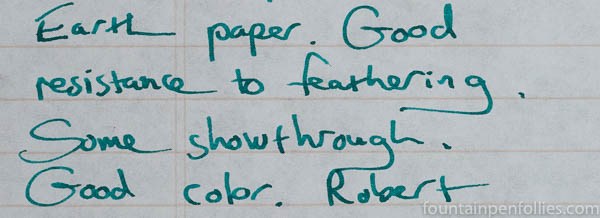 Earth paper. Good
resistance to feathering.
Some showthrough.
Good color. Robert
fountainpenfollies.com